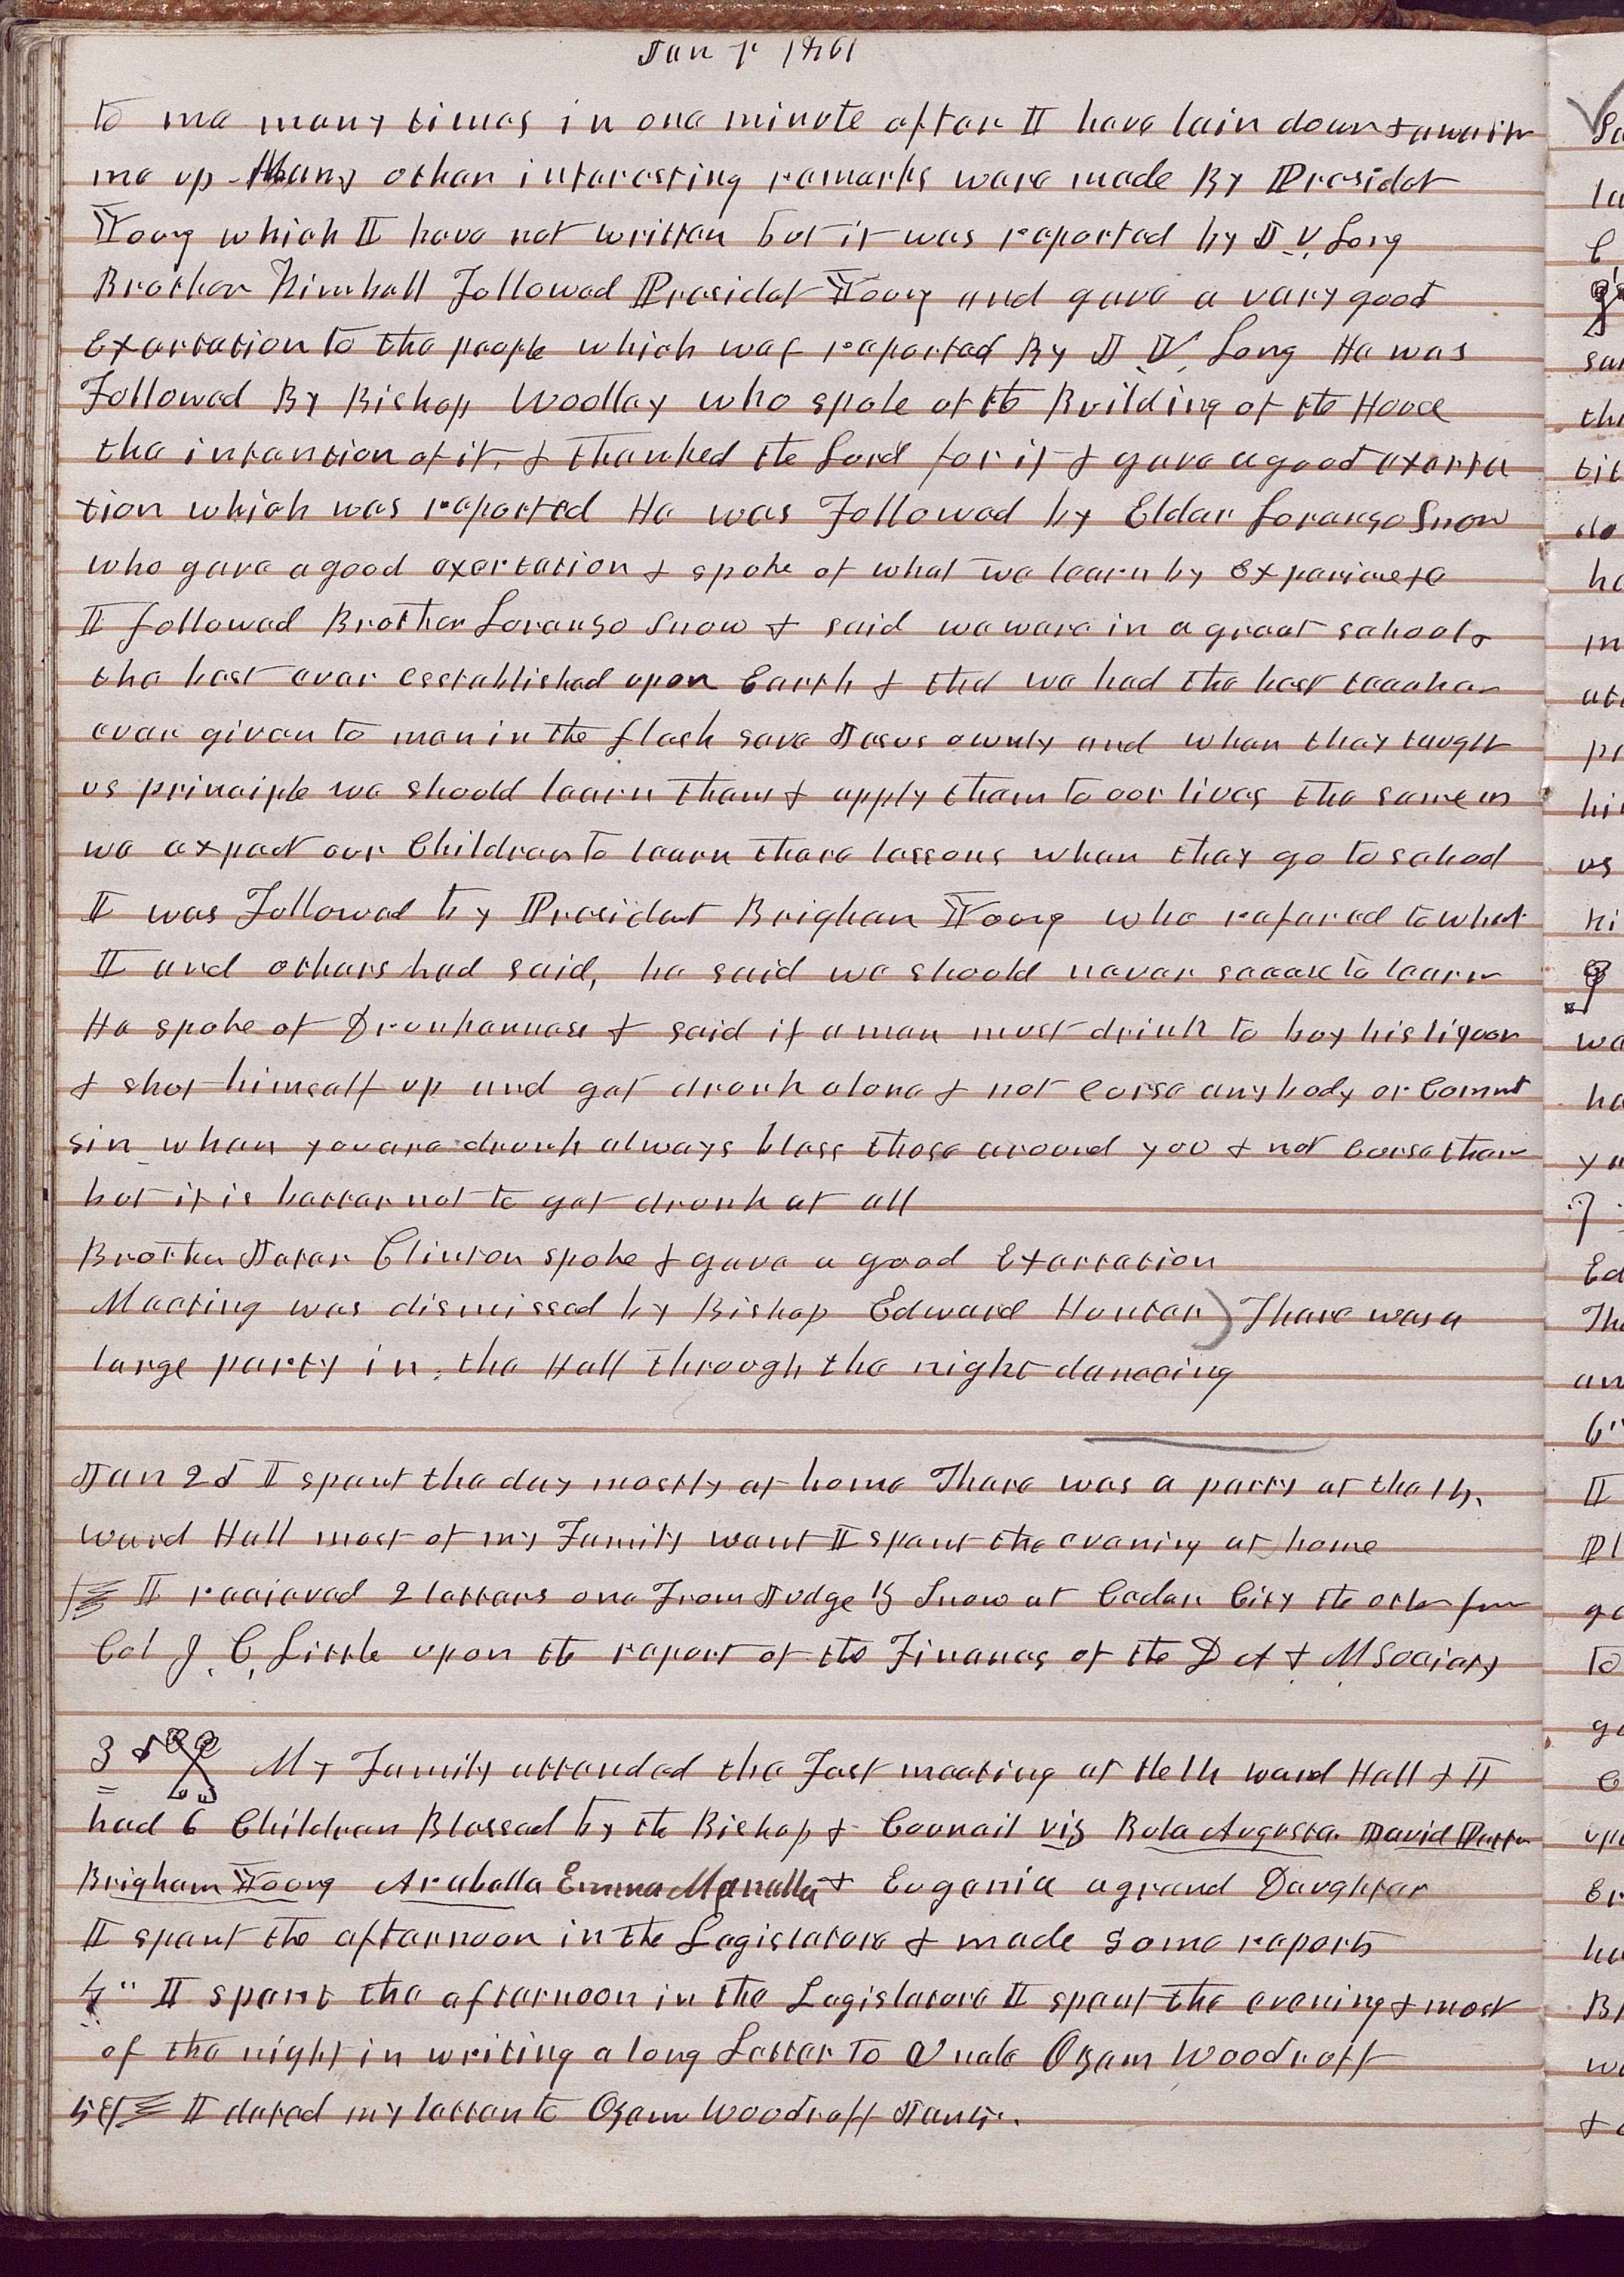 Jan 1st 1861
to me many times in one minute after I have lain down & await
me up. Many other interesting remarks were made By Presidet
Young which I have not written but it was reported by J. V. Long
Brother Kimball Followed Presidet Young and gave a very good
Exertation to the people which was reported By J. V. Long He was
Followed By Bishop Woolley who spoke of the Building of the House
the intention of it, & thanked the Lord for it & gave a good exerta
tion which was reported He was Followed by Elder Loranzo Snow
who gave a good exertation & spoke of what we learn by Experience
I followed Brother Loranzo Snow & said we ware in a great school &
the best ever esstablished upon Earth & that we had the best teacher
ever given to man in the flesh save Jesus ownly and when they taught
us principle we should learn them & apply them to our lives the same as
we expect our Children to learn there lessons when they go to school
I was Followed by President Brigham Young who refered to what
I and others had said, he said we should never seease to learn
He spoke of Drunkanness & said if a man must drink to buy his liquor
& shut himself up and get drunk alone & not curse any body or Commit
sin when you are drunk always bless those around you & not curse them
but it is better not to get drunk at all
Brother Jeter Clinton spoke & gave a good Exertation
Meeting was dismissed by Bishop Edward Hunter) There was a
large party in the Hall through the night dancing
Jan 2d I spent the day mostly at home There was a party at the 14
ward Hall most of my Family went I spent the evening at home
I recieved 2 letters one From Judge Z Snow at Cedar City the other from
Col J. C. Little upon the report of the Finances of the D A & M Society
3d My Family attended the Fast meeting at the 14 ward Hall & I
had 6 Children Blessed by the Bishop & Council viz Bula Augusta. David Patten
Brigham Young Arabella Emma Manella & Eugenia a grand Daughter
I spent the afternoon in the Legislature & made some reports
4" I spent the afternoon in the Legislature I spent the evening & most
of the night in writing a long Letter to Uncle Ozem Woodruff
5th I dated my letter to Ozem Woodruff Jan 5.